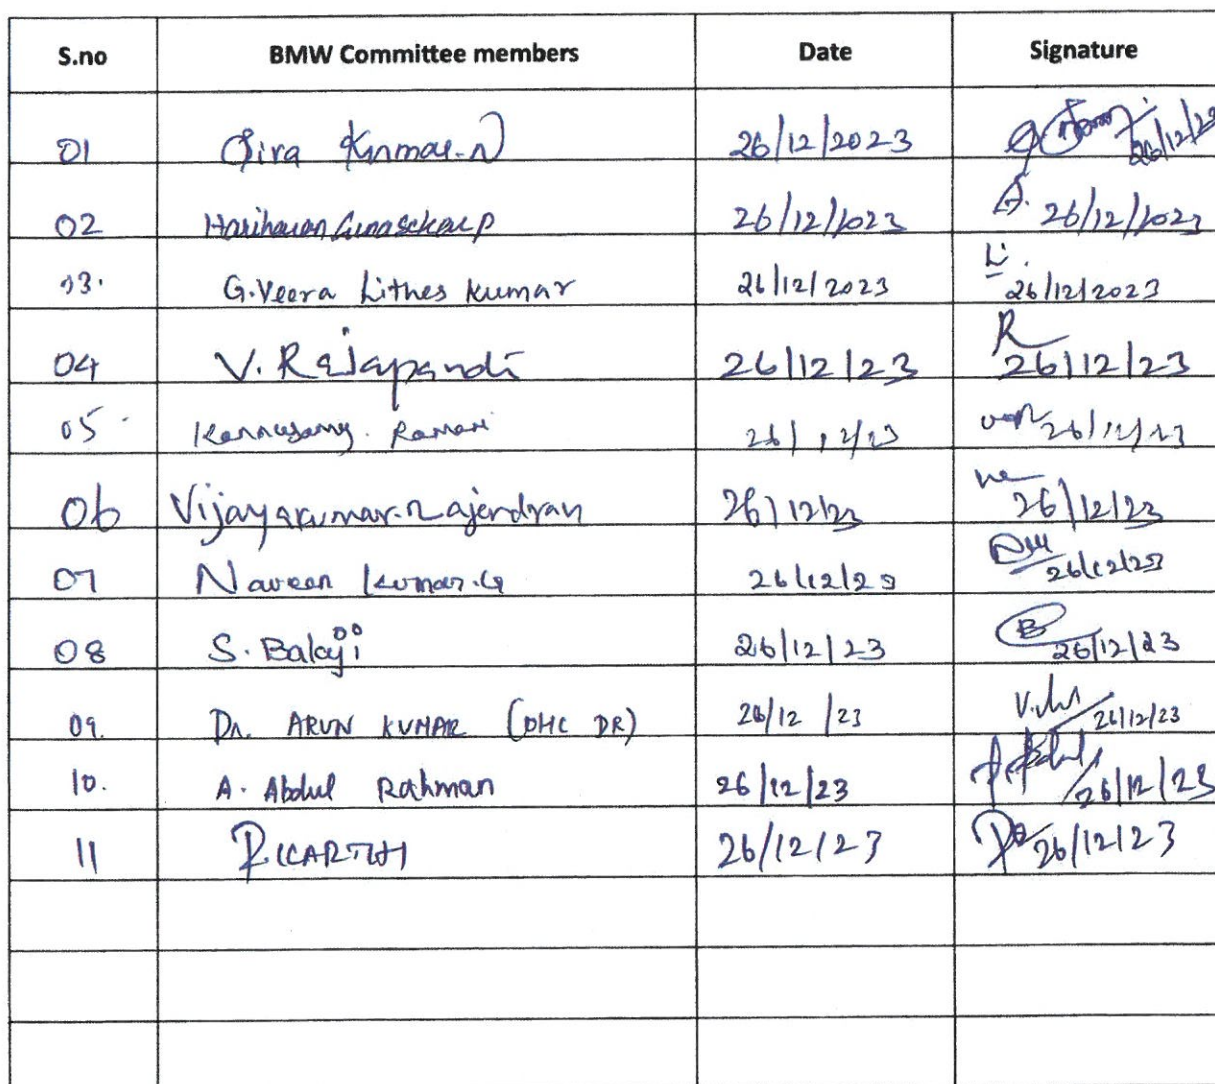 S.no BMW Committee members Date Signature
01 Siva Kumar.N 26/12/2023 26/12/23
02 26/12/2023 26/12/2023
03. G.Veera Lithes Kumar 26/12/2023 Li. 26/12/2023
04 V. Rajapandi 26/12/23 R 26/12/23
05 Kannusamy. Raman 26/12/23 26/12/23
06 Vijayakumar.Rajendran 26/12/23 26/12/23
07 Naveen Kumar.G 26/12/23 26/12/23
08 S. Balaji 26/12/23 B 26/12/23
09. Dr. ARUN KUMAR (OHC DR) 26/12/23 26/12/23
10. A. Abdul Rahman 26/12/23 26/12/23
11 P.KARTHI 26/12/23 26/12/23